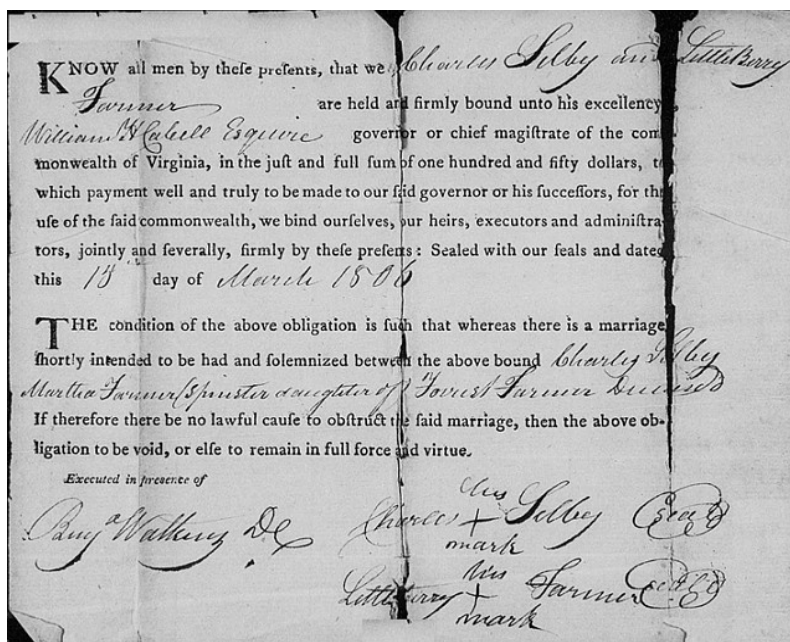 KNOW all men by theſe preſents, that we Charles Selby and LittleBerry
Farmer are held and firmly bound unto his excellency
William H Cabell Esquire governor or chief magistrate of the com-
monwealth of Virginia, in the juſt and full ſum of one hundred and fifty dollars, to
which payment well and truly to be made to our ſaid governor or his ſucceſſors, for the
uſe of the ſaid commonwealth, we bind ourſelves, our heirs, executors and adminiſtra-
tors, jointly and ſeverally, firmly by theſe preſents: Sealed with our ſeals and dated
this day of March 1806
THE condition of the above obligation is ſuch that whereas there is a marriage
ſhortly intended to be had and ſolemnized between the above bound Charles Selby
Martha Farmer (spinster daughter of) Forrest Farmer Deceased
If therefore there be no lawful cauſe to obſtruct the ſaid marriage, then the above ob-
ligation to be void, or elſe to remain in full force and virtue.
Executed in preſence of
his
Benja Watkins DC Charles + Selby (seal)
mark
his
Littleberry + Farmer (seal)
mark